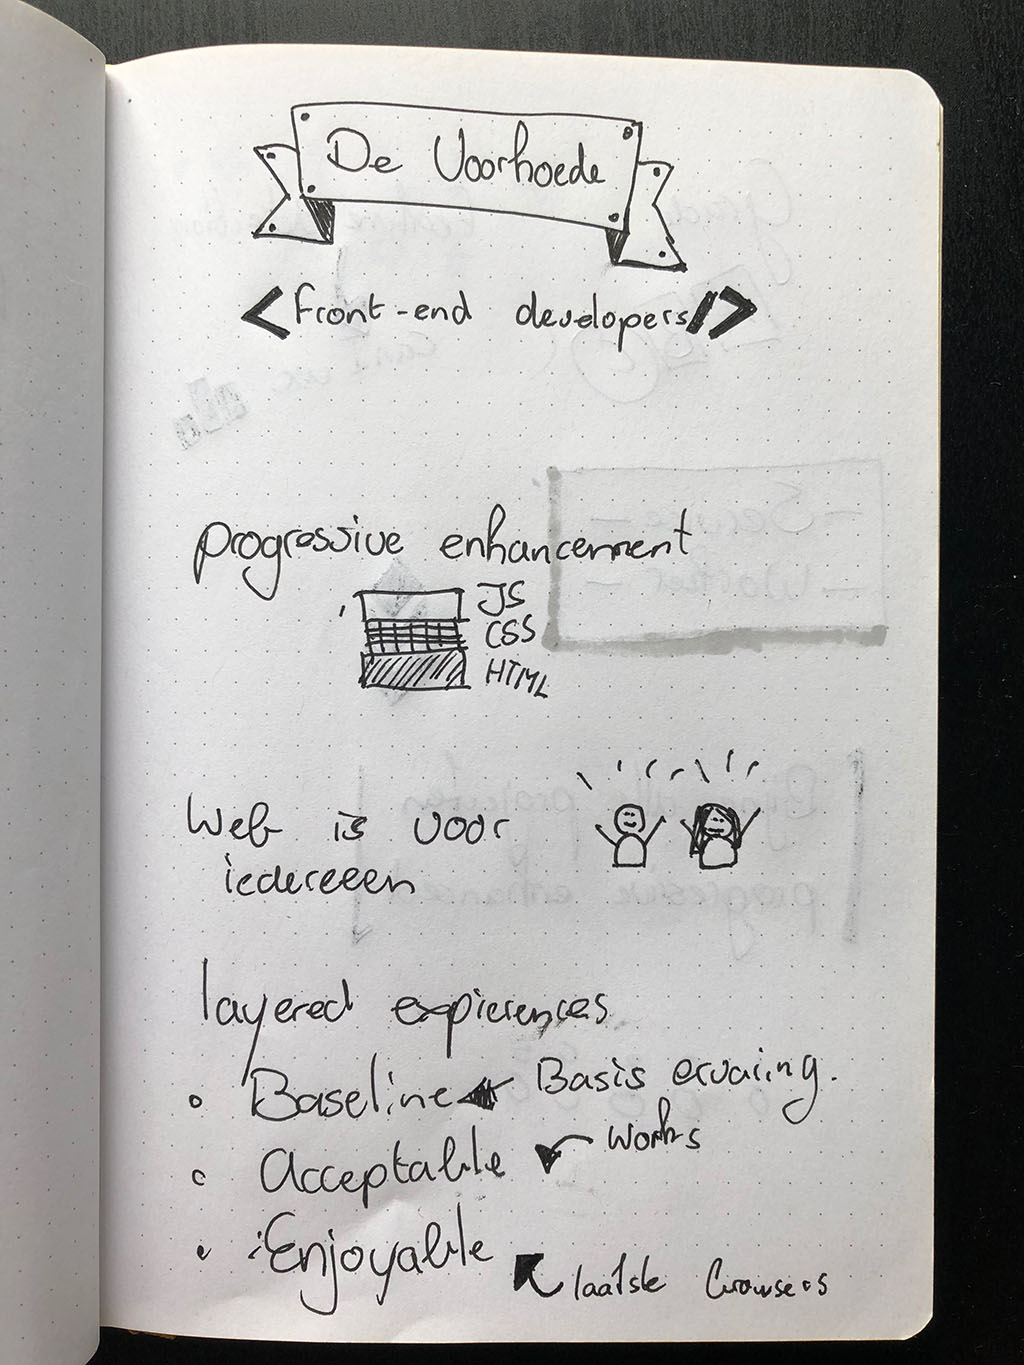 De Voorhoede
<Front-end developers/>
progressive enhancement
JS
CSS
HTML
Web is voor
iedereeen
layered expierences
Baseline Basis ervaring.
Acceptable works
Enjoyable
laatste browsers